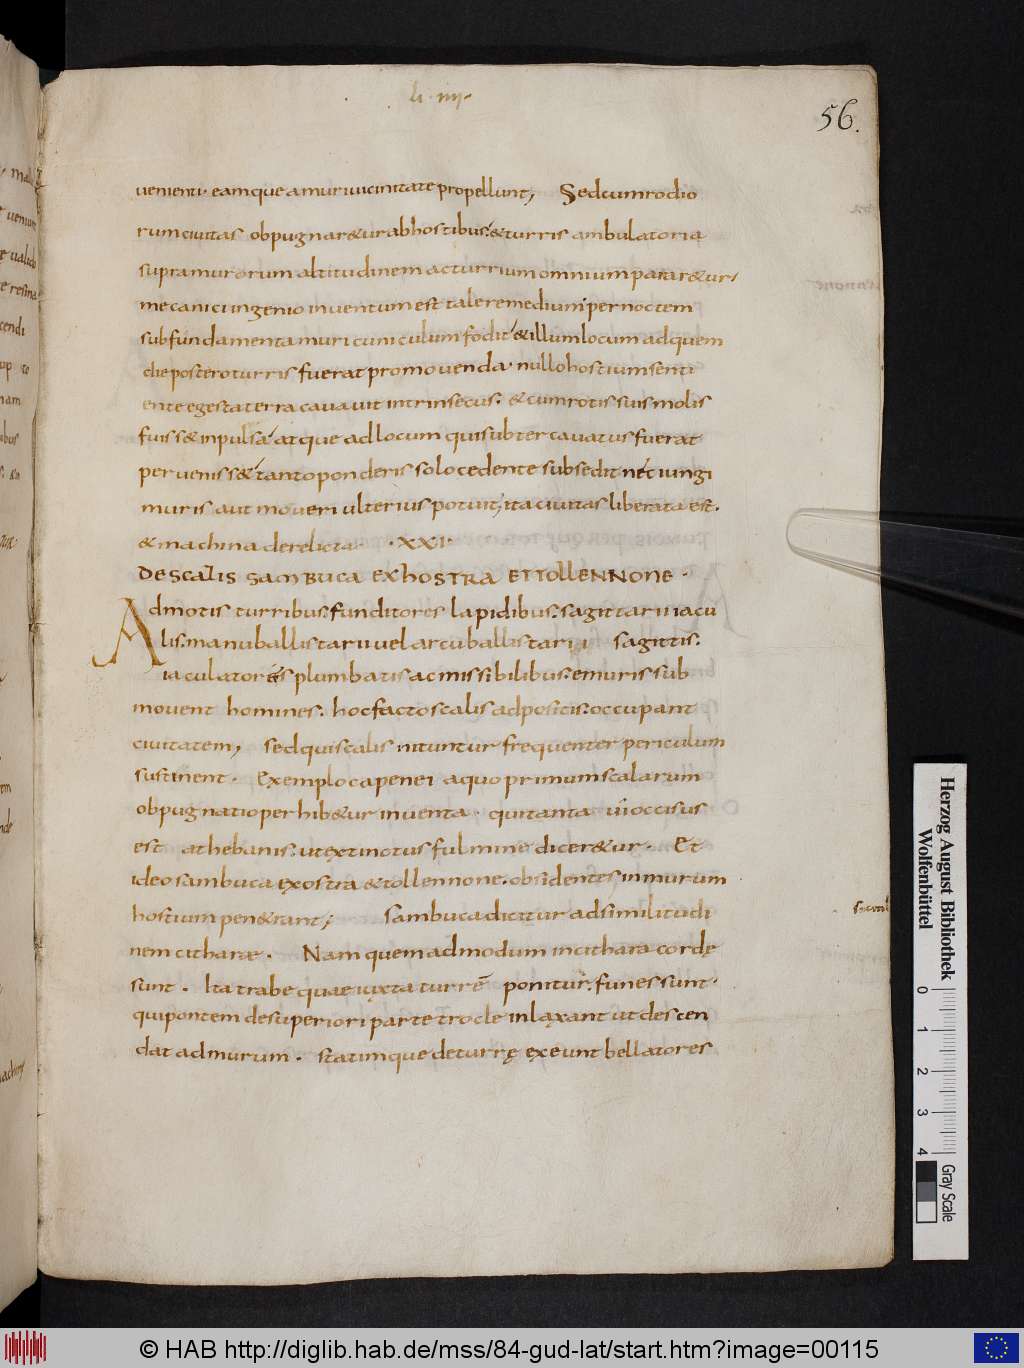 li · iiij ·
56.
uenienti · eamque a muri uicinitate propellunt; Sed cum rodio
rum ciuitas obpugnar&ur ab hostibus · & turris ambulatoria
supra murorum altitudinem ac turrium omnium parar&ur ·
mecanici ingenio inuentum est tale remedium · per noctem
sub fundamenta muri cuniculum fodit & illum locum ad quem
die postero turris fuerat promouenda · nullo hostium senti
ente egesta terra cauauit intrinsecus · & cum rotis suis molis
fuiss& inpulsa atque ad locum qui subter cauatus fuerat
perueniss& tanto ponderi solo cedente subsedit nec iungi
muris aut moueri ulterius potuit, ita ciuitas liberata est ·
& machina derelicta · · XXI ·
DE SCALIS SAMBUCA EXHOSTRA ET TOLLENNONE ·
Admotis turribus · funditores lapidibus · sagittarii iacu
lis · manuballistarii uel arcuballistarii sagittis ·
iaculatores plumbatis ac missibilibus · e muris sub
mouent homines · hoc facto scalis adpositis · occupant
ciuitatem; sed qui scalis nituntur frequenter periculum
sustinent · Exemplo capenei a quo primum scalarum
obpugnatio perhib&ur inuenta · qui tanta ui occisus
est a thebanis · ut extinctus fulmine dicer&ur · Et
ideo sambuca exostra & tollennone · obsidentes in murum
hostium pen&rant; Sambuca dicitur ad similitudi
nem citharae · Nam quemadmodum in cithara cordę
sunt · Ita trabe quae iuxta turrē ponitur · funes sunt ·
qui pontem de superiori parte trocleis laxant ut descen
dat ad murum · statimque de turrę exeunt bellatores
Herzog August Bibliothek
Wolfenbüttel
0 1 2 3 4
Gray Scale
© HAB http://diglib.hab.de/mss/84-gud-lat/start.htm?image=00115